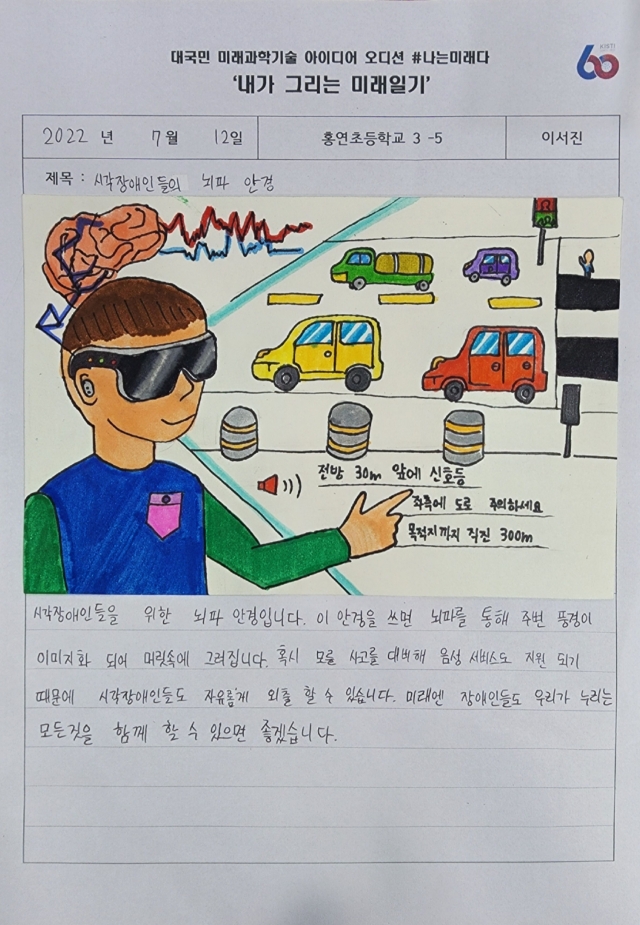 대국민 미래과학기술 아이디어 오디션 #나는미래다
'내가 그리는 미래일기'
KISTI
60
2022 년 7월 12일 홍연초등학교 3-5 이서진
제목 : 시각장애인들의 뇌파 안경
전방 30m 앞에 신호등
좌측에 도로 주의하세요
목적지까지 직진 300m
시각장애인들을 위한 뇌파 안경입니다. 이 안경을 쓰면 뇌파를 통해 주변 풍경이
이미지화 되어 머릿속에 그려집니다. 혹시 모를 사고를 대비해 음성 서비스도 지원 되기
때문에 시각장애인들도 자유롭게 외출 할 수 있습니다. 미래엔 장애인들도 우리가 누리는
모든것을 함께 할 수 있으면 좋겠습니다.